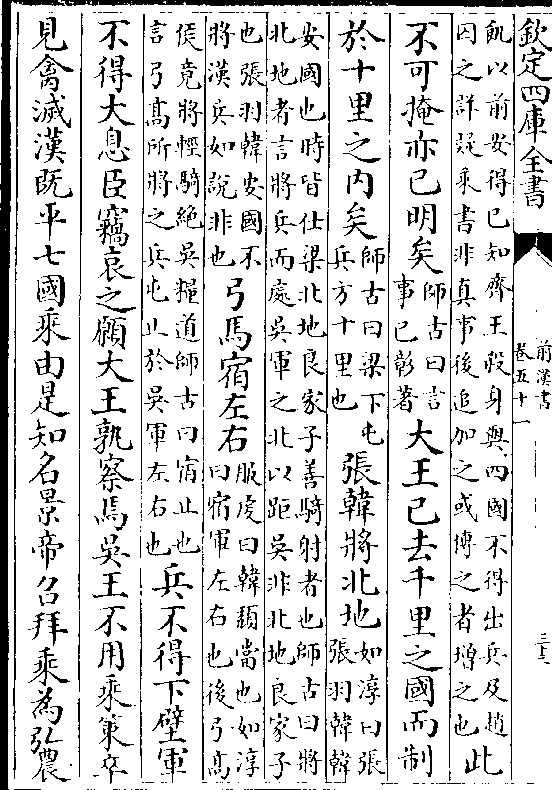 欽定四庫全書
前漢書
卷五十一
飢以前安得已知齊王殺身與四國不得出兵及趙
因之詳疑乘書非真事後追加之或傳之者增之也
此
不可掩亦已明矣
師古曰言
事已彰著
大王已去千里之國而制
於十里之內矣
師古曰梁下屯
兵方十里也
張韓將北地
如淳曰張
張羽韓韓
安國也時皆仕梁北地良家子善騎射者也師古曰將
北地者言將兵而處吳軍之北以距吳非北地良家子
也張羽韓安國不
將漢兵如說非也
弓馬宿左右
服虔曰韓頽當也如淳
曰宿軍左右也後弓高
侯竟將輕騎絶吳糧道師古曰宿止也
言弓高所將之兵屯止於吳軍左右也
兵不得下壁軍
不得大息臣竊哀之願大王孰察焉吳王不用乘策卒
見禽滅漢既平七國乘由是知名景帝召拜乘為弘農